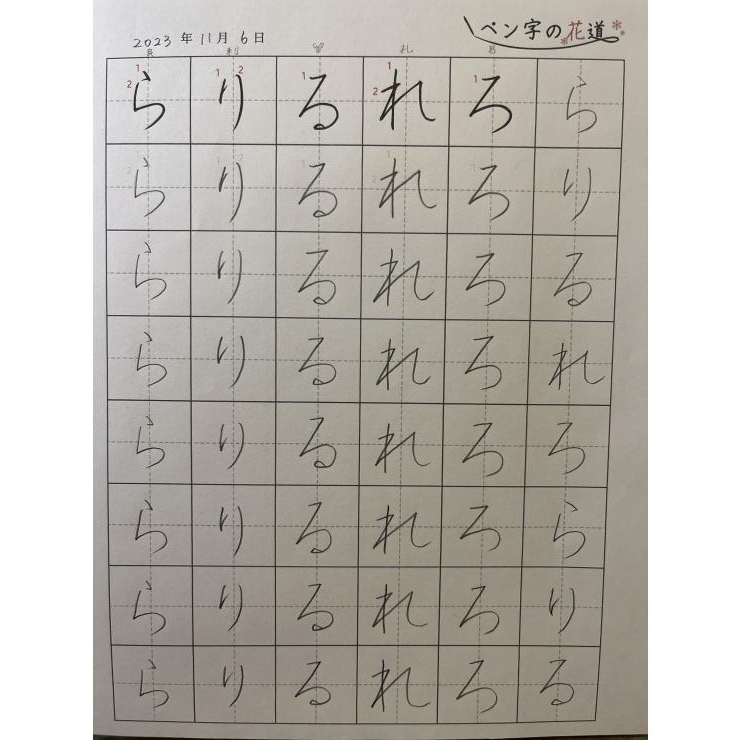 2023 年 11 月 6 日
ペン字の花道
良 利 留 礼 呂
1 2 1 2 1 1 2 1
ら り る れ ろ ら
ら り る れ ろ り
ら り る れ ろ る
ら り る れ ろ れ
ら り る れ ろ ろ
ら り る れ ろ ら
ら り る れ ろ り
ら り る れ ろ る